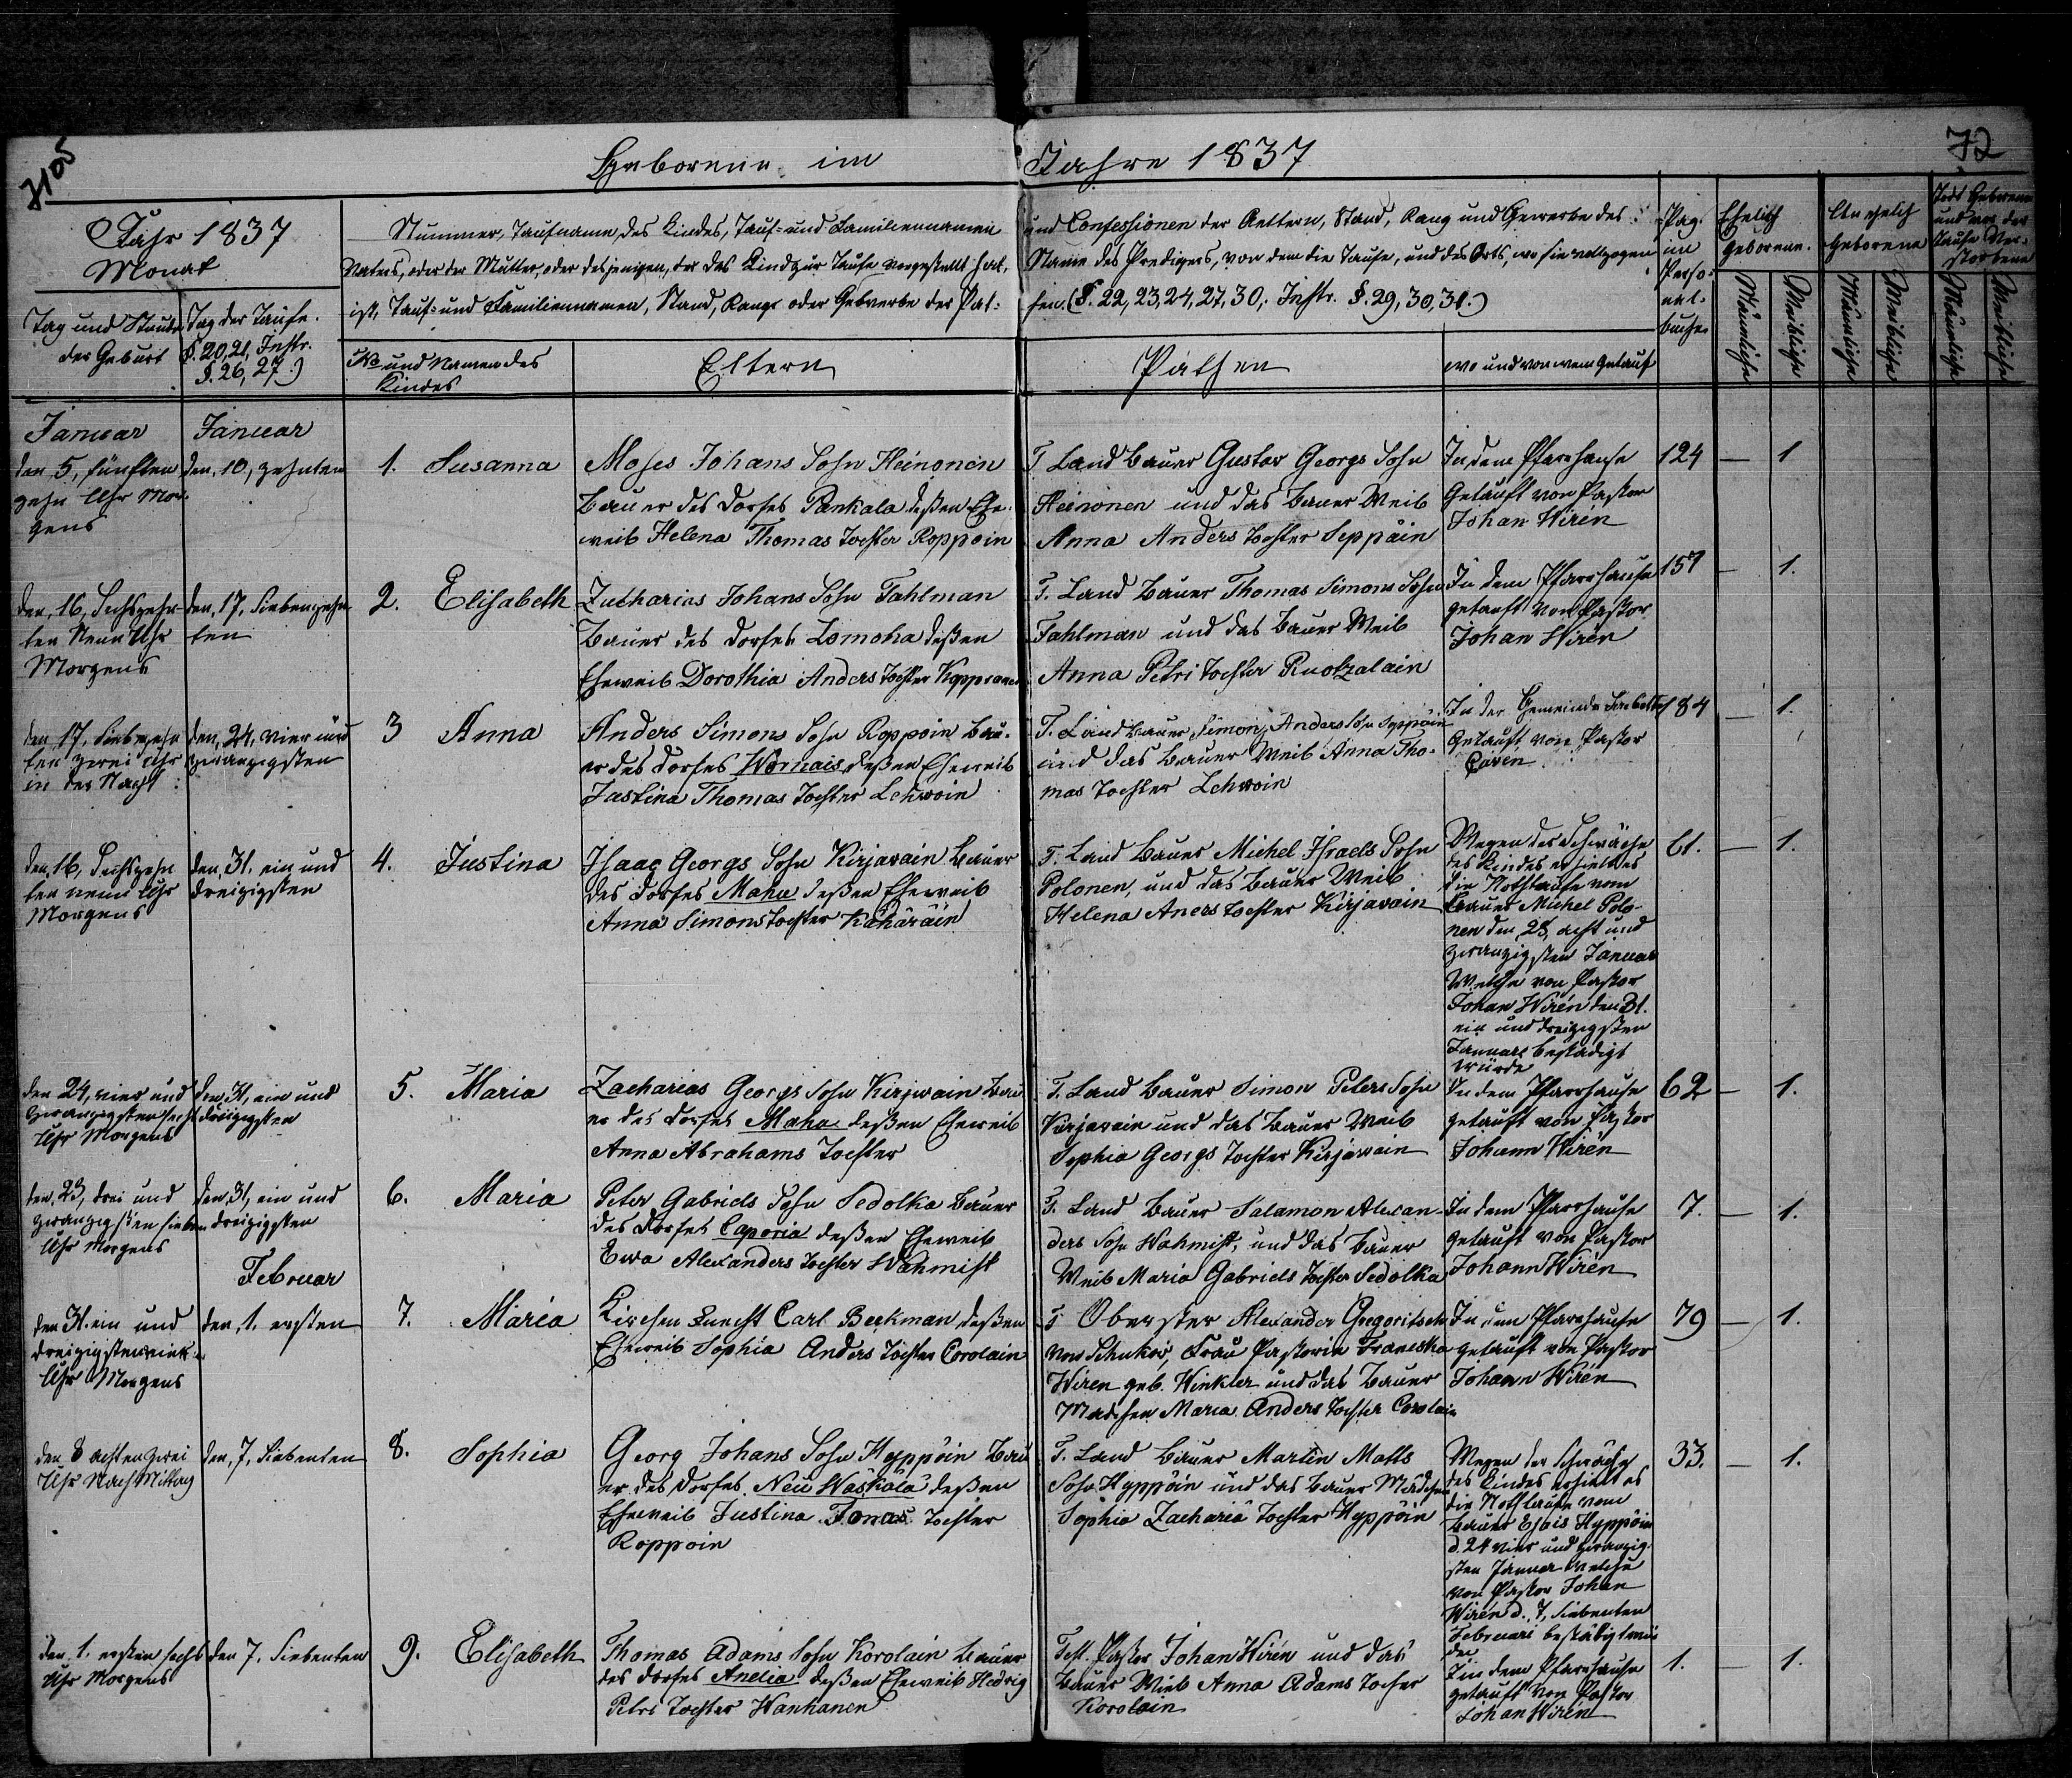 Geborene im Jahre 1837
72
Jahr 1837
Monat
Tag und Stunde
der Geburt
Tag der Taufe.
§. 20, 21, Instr.
§. 26, 27.)
Nummer, Taufname des Kindes, Tauf- und Familiennamen
Vaters, oder der Mutter, oder desjenigen, der das Kind zur Taufe vorgestellt hat,
ist, Tauf- und Familiennamen, Stand, Rang oder Gewerbe der Pat-
No und Namen des
Kindes
Eltern
und Confessionen der Aeltern, Stand, Rang und Gewerbe des
Name des Predigers, von dem die Taufe, und des Orts, wo sie vollzogen
hen. (§. 22, 23, 24, 27, 30, Instr. §. 29, 30, 31.)
Pathen
wo und von wem Getauft
Pag.
im
Perso-
nal-
buche
Ehelich
Geborene.
Un ehelich
Geborene
Todt Geborene
und vor der
Taufe Ver-
storbene
Männliche
Weibliche
Männliche
Weibliche
Männliche
Weibliche
Januar
Januar
den 5, fünften
zehn Uhr Mor-
gens
den, 10, zehnten
1. Susanna
Moses Johans Sohn Heinonen
Bauer des Dorfes Pankala deßen Ehe-
weib Helena Thomas Tochter Roppoin
T. Land Bauer Gustav Georgs Sohn
Heinonen und das Bauer Weib
Anna Anders Tochter Seppäin
In dem Pfarrhause
Getauft von Pastor
Johan Wirén
124 — 1
den, 16, Sechszehn
ten Neun Uhr
Morgens
den, 17, Siebenzehn
ten
2. Elisabeth
Zacharias Johans Sohn Tahlman
Bauer des Dorfes Lomoha deßen
Eheweib Dorothia Anders Tochter Kopponen
T. Land Bauer Thomas Simons Sohn
Tahlman und das Bauer Weib
Anna Petri Tochter Ruotzalain
In dem Pfarrhause
getauft von Pastor
Johan Wirén
157 — 1.
den, 17, Siebenzehn
ten zwei Uhr
in der Nacht
den, 24, vier und
zwanzigsten
3 Anna
Anders Simons Sohn Roppoin Bau-
er des Dorfes Wornais deßen Eheweib
Justina Thomas Tochter Lehwoin
T. Land Bauer Simon Anders Sohn Seppäin
und das Bauer Weib Anna Tho-
mas Tochter Lehwoin
In der Gemeinde
Getauft von Pastor
Caven
184 — 1.
den, 16, Sechszehn
ten neun Uhr
Morgens
den, 31. ein und
dreizigsten
4. Justina
Isaac Georgs Sohn Kirjawain Bauer
des Dorfes Maha deßen Eheweib
Anna Simons Tochter Kähäräin
T. Land Bauer Michel Israels Sohn
Polonen, und das Bauer Weib
Helena Aners Tochter Kirjawain
Wegen der Schwäche
des Kindes erhielt es
die Nothtaufe vom
Bauer Michel Polo-
nen den 28, acht und
zwanzigsten Januar
Welche von Pastor
Johan Wirén den 31.
ein und dreizigsten
Januari bestädigt
würde
61. — 1.
den 24, vier und
zwanzigsten sechs
Uhr Morgens
den, 31, ein und
dreizigsten
5. Maria
Zacharias Georgs Sohn Kirjwain Bau
er des Dorfes Maha deßen Eheweib
Anna Abrahams Tochter
T. Land Bauer Simon Peters Sohn
Kirjawain und das Bauer Weib
Sophia Georgs Tochter Kirjawain
In dem Pfarrhause
getauft von Pastor
Johann Wirén
62 — 1.
den, 23, drei und
zwanzigsten sieben
Uhr Morgens
den, 31, ein und
dreizigsten
6. Maria
Peter Gabriels Sohn Sedolka Bauer
des Dorfes Caporia deßen Eheweib
Ewa Alexanders Tochter Wahmist
T. Land Bauer Salamon Alexan-
ders Sohn Wahmist, und das Bauer
Weib Maria Gabriels Tochter Sedolka
In dem Pfarrhause
getauft von Pastor
Johann Wirén
7. — 1.
Februar
den 31. ein und
dreizigsten
Uhr Morgens
den, 1. ersten
7. Maria
Kirchen Knecht Carl Beekman deßen
Eheweib Sophia Anders Tochter Corolain
T. Oberster Alexander Gregoritsch
von Schukov, Frau Pastorin Franciska
Wiren geb. Winkler und das Bauer
Mädchen Maria Anders Tochter Corolain
In dem Pfarrhause
getauft von Pastor
Johann Wirén
79 — 1.
den 8 achten zwei
Uhr Nach Mittag
den, 7, Siebenten
8. Sophia
Georg Johans Sohn Hyppöin Bau
er des Dorfes Neü Waskala deßen
Eheweib Justina Tomas Tochter
Roppoin
T. Land Bauer Martin Matts
Sohn Hyppöin und das Bauer Mädchen
Sophia Zacharia Tochter Hyppöin
Wegen der Schwäche
des Kindes erhielt es
die Nothtaufe vom
Bauer Esais Hyppöin
d. 24 vier und zwanzig-
sten Januar welche
von Pastor Johan
Wirén d. 7, Siebenten
Februari bestätigt wür
de
33. — 1.
den 1. ersten sechs
Uhr Morgens
den 7. Siebenten
9. Elisabeth
Thomas Adams Sohn Korolain Bauer
des Dorfes Anelia deßen Eheweib Hedvig
Petri Tochter Wanhanen
Test. Pastor Johan Wirén und das
Bauer Wieb Anna Adams Tocher
Korolain
In dem Pfarrhause
getauft von Pastor
Johan Wirén
1. — 1.